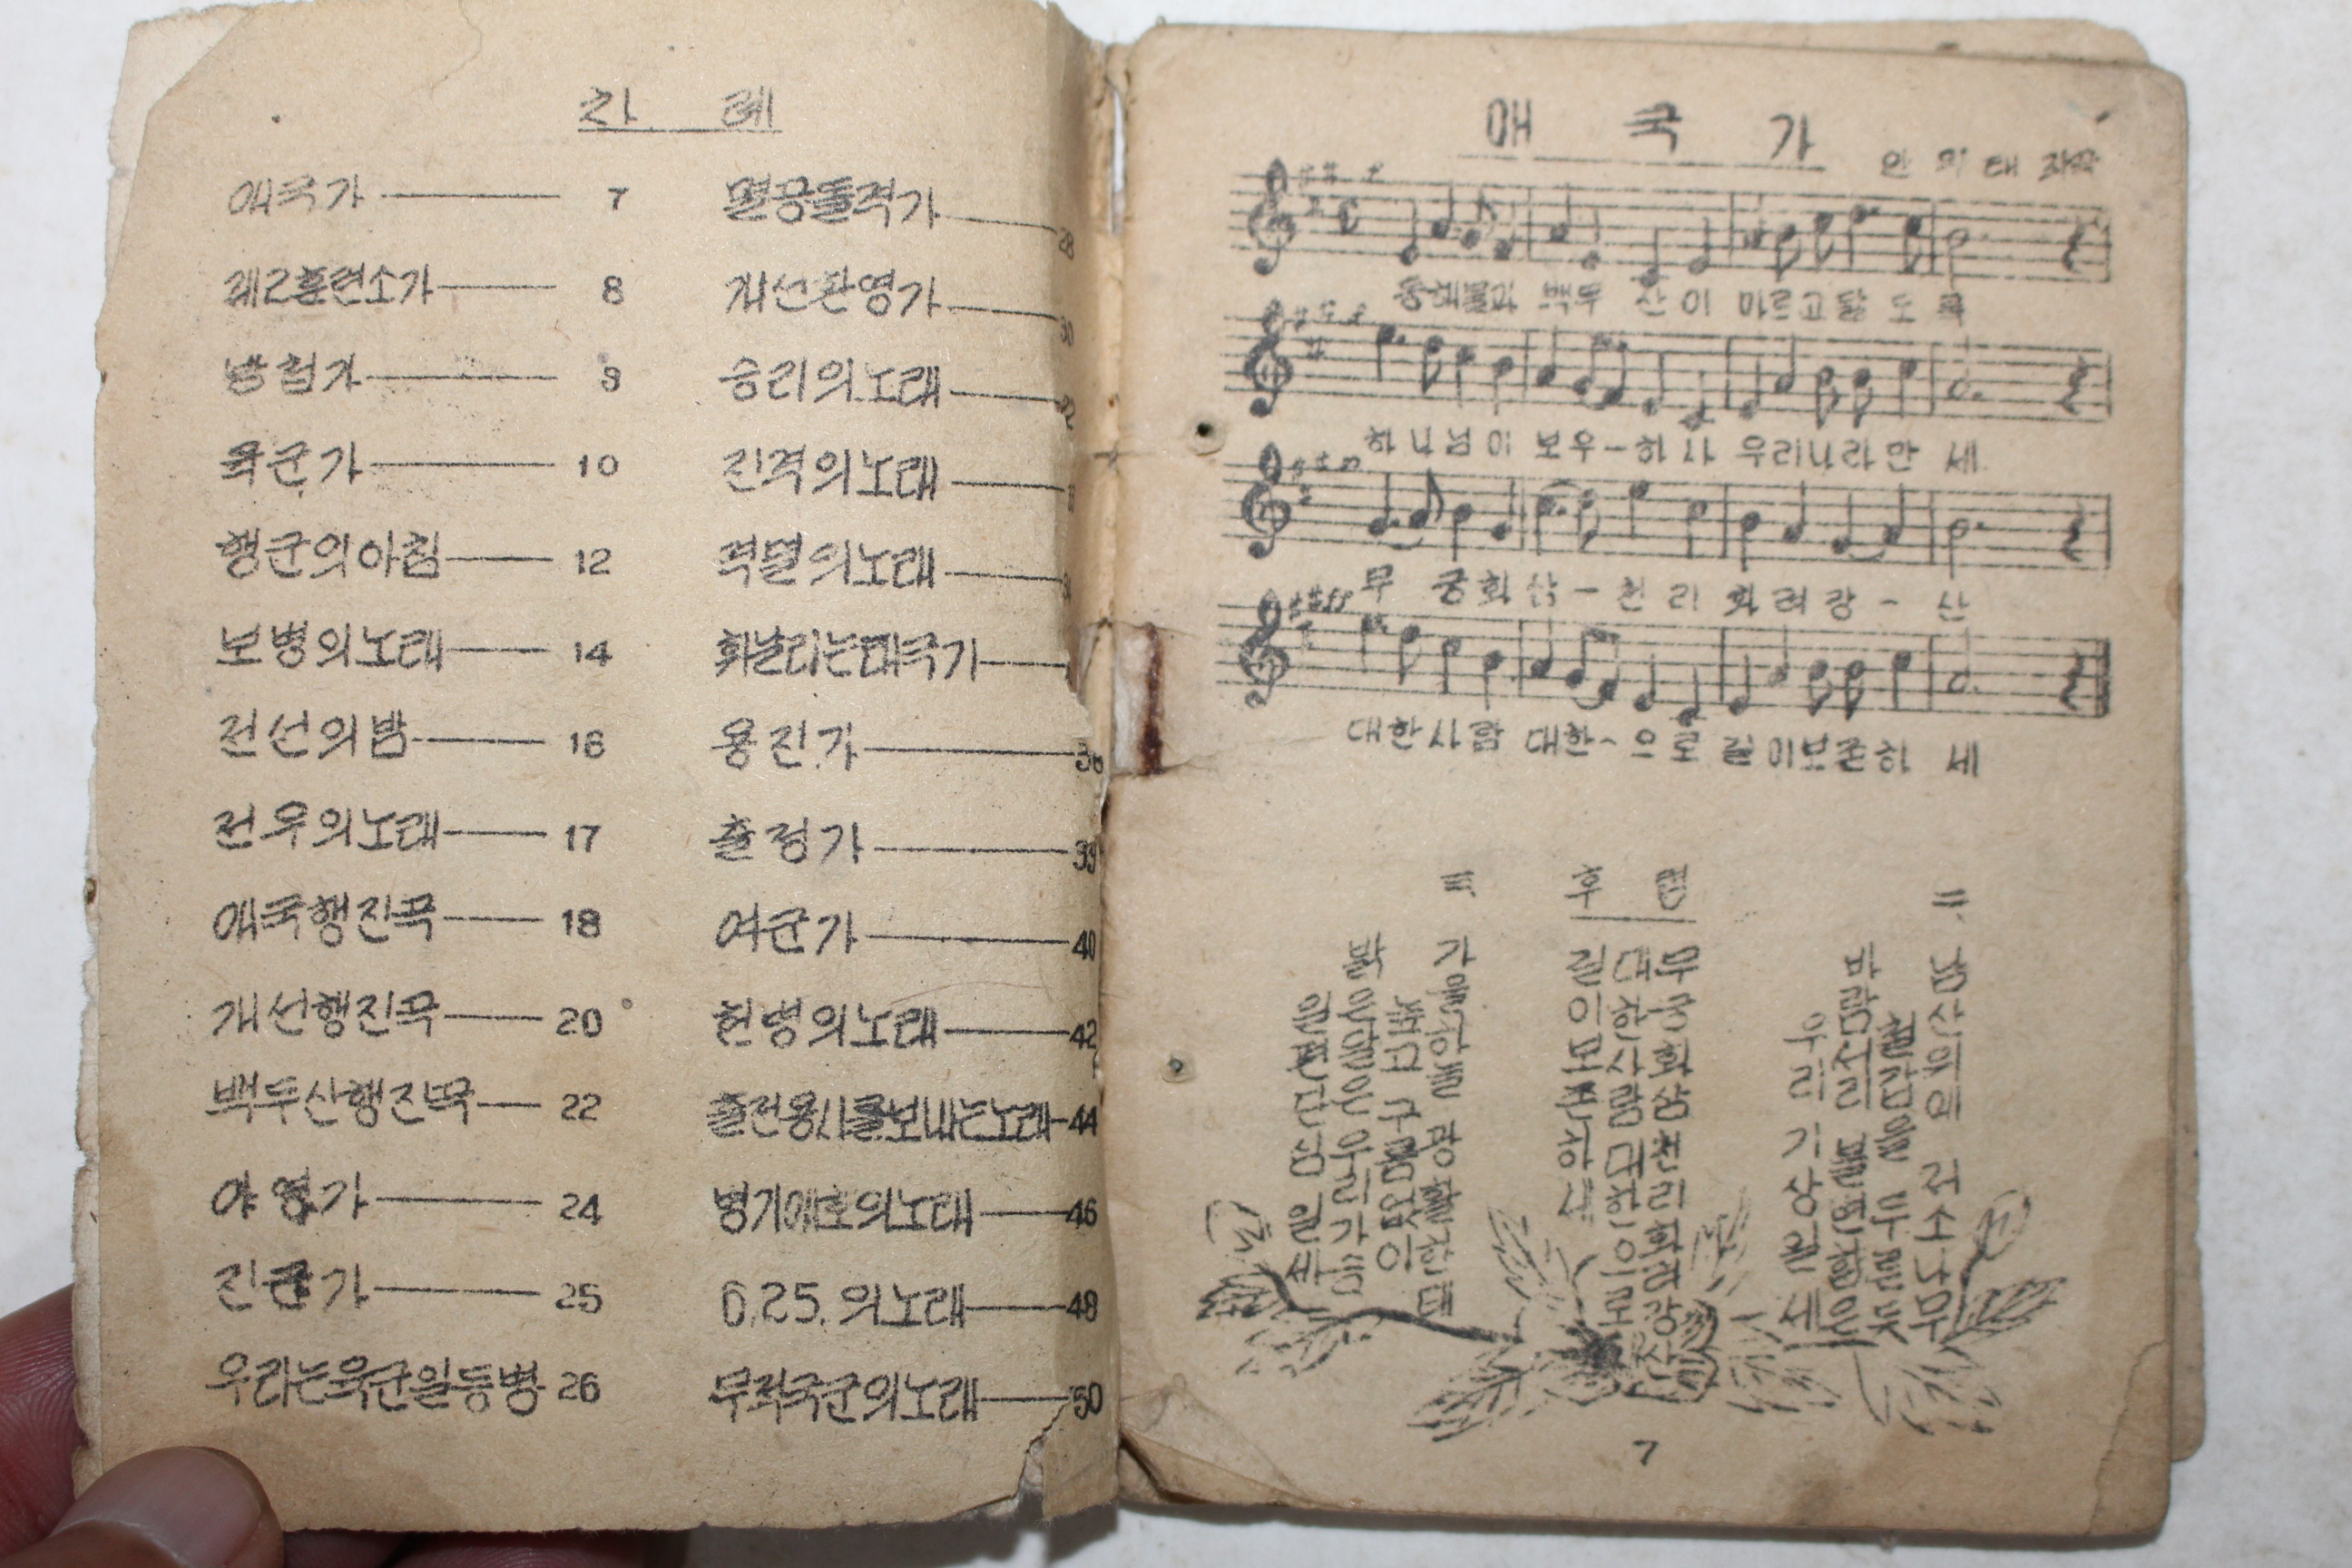 차 례
애국가 7
제2훈련소가 8
방첩가 9
육군가 10
행군의아침 12
보병의노래 14
전선의밤 16
전우의노래 17
애국행진곡 18
개선행진곡 20
백두산행진곡 22
야영가 24
진군가 25
우리는육군일등병 26
멸공돌격가 28
개선환영가 30
승리의노래
진격의노래
격멸의노래
휘날리는태극기
용진가 36
출정가 39
여군가 40
헌병의노래 42
출전용사를보내는노래 44
병기애호의노래 46
6.25.의노래 48
무적국군의노래 50
애 국 가
안 익 태 작곡
동해물과 백두 산 이 마르고닳 도 록
하나님이 보우-하 사 우리나라만 세
무 궁화 삼 - 천 리 화 려 강 - 산
대한사람 대한-으로 길이보존하 세
二.
남산위에 저소나무
철갑을 두룬듯
바람서리 불변함은
우리기상일세
후 렴
무궁화삼천리화려강산
대한사람대한으로
길이보존하세
三.
가을하늘 공활한데
높고 구름없이
밝은달은 우리가슴
일편단심 일세
7